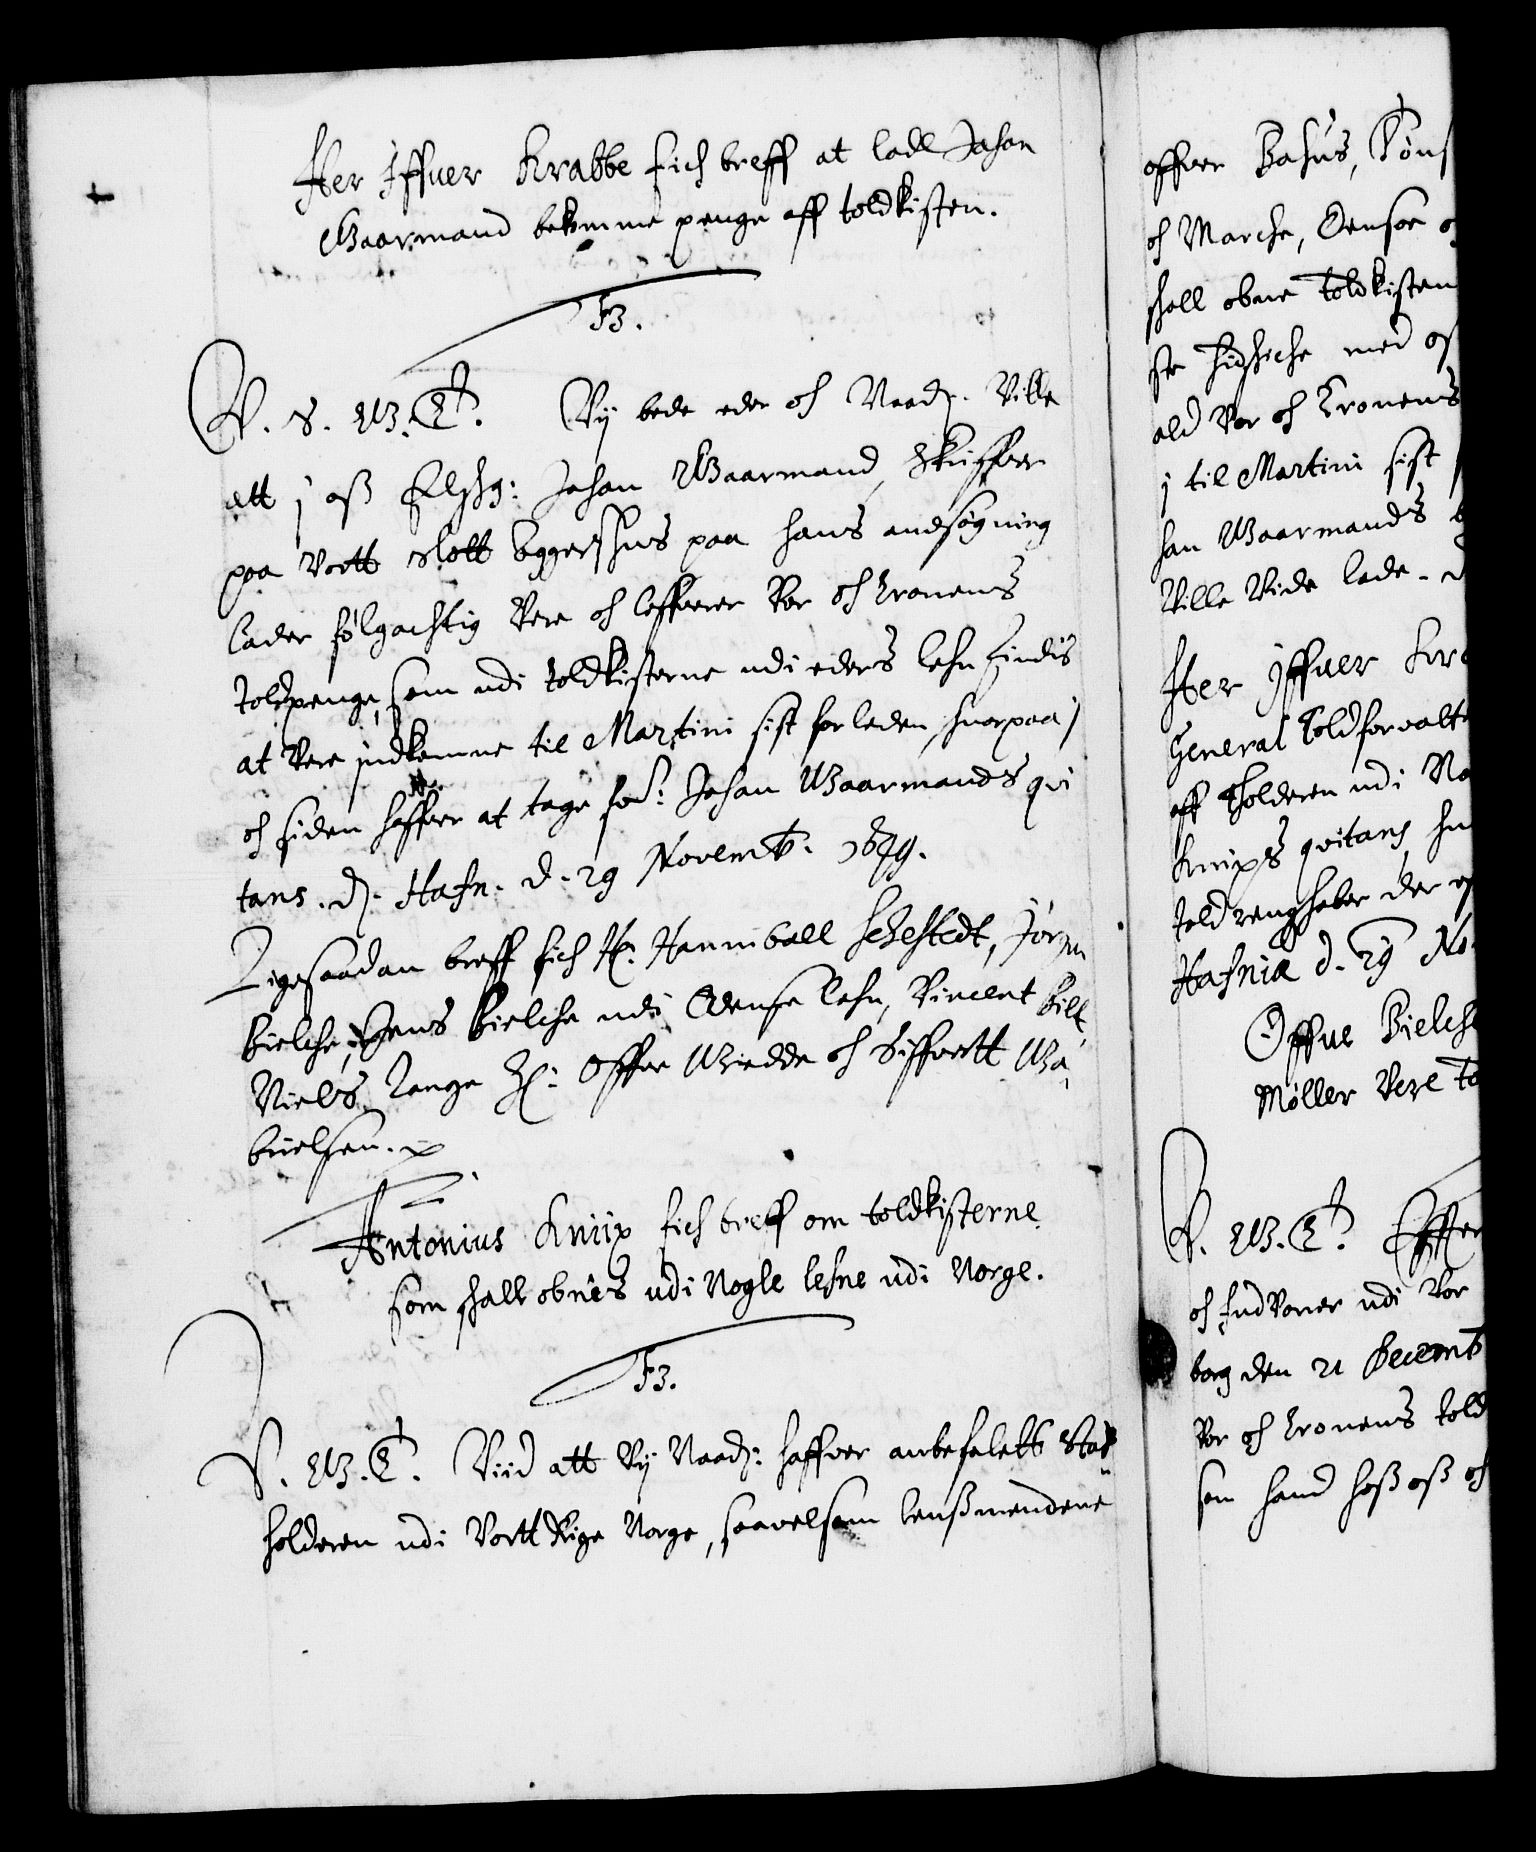 Her Iffuer Krabbe fich breff at lade Johan
Gaarmand bekomme penge aff toldkisten.
F3.
V. S. G. T. Vij bede eder och Naadj. Ville
att j oß Elskg: Johan Gaarmand, Skriffuer
paa Vortt slott Aggershuus paa hans andsøgning
lader følgachtig Vere och leffuerer Vor och Cronens
toldpenge, som udi toldkisterne udi eders lehn findis
at Vere indkomne til Martini sist forleden, huorpaa j
och siden haffuer at tage for.ne Johan Gaarmands qvi
tans. dj. Hafn. d. 29 Novemb. 1649.
Ligesaadan breff fich H. Hanniball Sehestedt, Jørgen
Bielche, Jens Bielche udi Odensø lehn, Vincent Bilt,
Niels Lange H: Offue Giedde och Siffuertt Ga¸
brielsen.
Antonius Kniip fich breff om toldkisterne
som skall obnes udi Nogle lehne udi Norge.
F3.
V. G. T. Viid att Vij Naadj: haffuer anbefalett Stat
holderen udi Vortt Rige Norge, saavelsom lenßmendene
offuer Bahus, Tøns
och Marche, Oensøe o
skall obne toldkisten
ste hidskiche med oß
ald Vor och Cronens
j til Martini sist
han Gaarmands
Ville Vide lade. d
Her Iffuer Kra
General Toldforvalte
aff Tholderen udi No
Kniips qvitans, hu
told
Hafniæ d. 29 No
Offue Bielch
Møller Vere to
V. G. T. Effter
och Indvoner udi Vor
borg den 21 Decemb
Vor och Cronens told
som hand hoß oß och